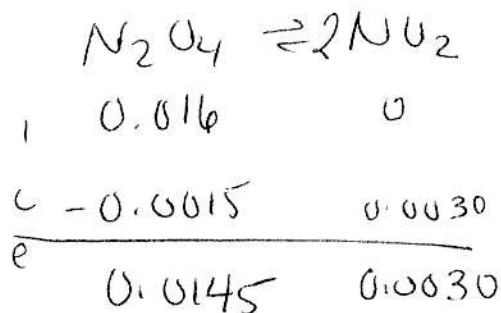 N₂O₄ ⇌ 2NO₂
i 0.016 0
c -0.0015 0.0030
e 0.0145 0.0030